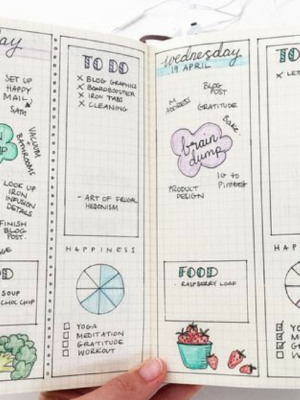 ay
SET UP
HAPPY
MAIL
5AM
VACUUM
+
BATHROOMS
LOOK UP
IRON
INFUSION
DETAILS
FINISH
BLOG
POST.
OD
SOUP
CHOC CHIP
TO DO
X BLOG GRAPHICS
X BOARDBOOSTER
X IRON TABS
X CLEANING
- ART OF FRUGAL
HEDONISM
HAPPINESS
YOGA
MEDITATION
GRATITUDE
WORKOUT
wednesday
19 APRIL
BLOG
POST
ADDRESS
GRATITUDE
BAKE
brain
dump
PRODUCT
DESIGN
IG to
Pinterest
FOOD
- RASPBERRY LOAF
TO
X LE
HAPP
YO
ME
GR
WO